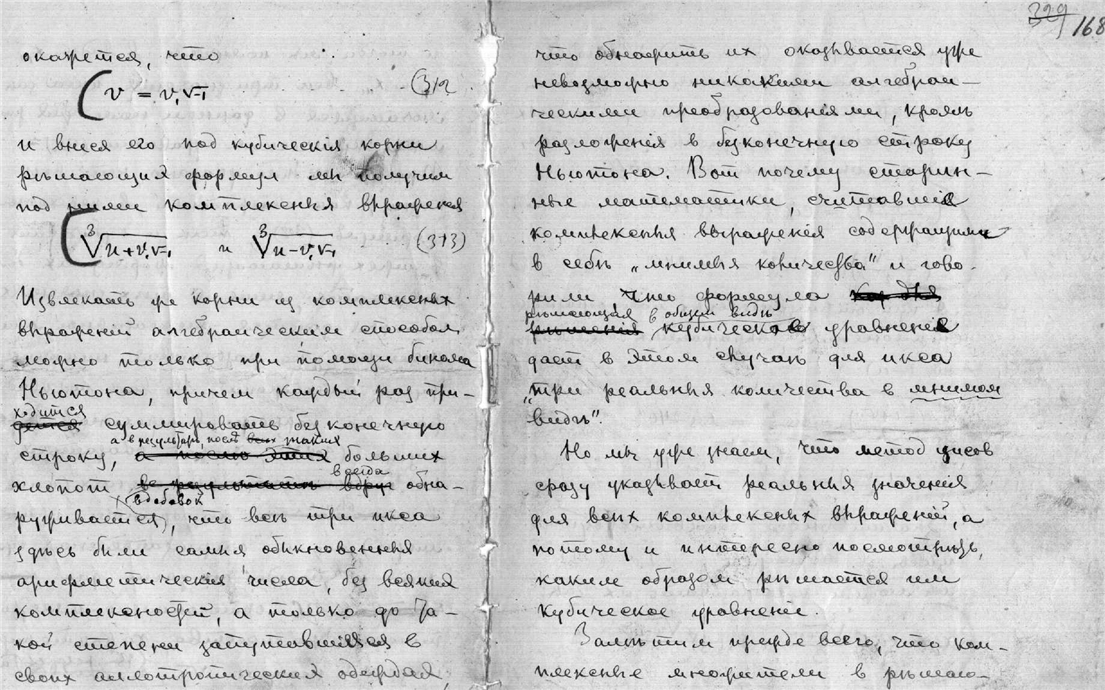 окажется, что
v = v₁√-1 (312
и внеся его под кубическія корни
рѣшающихъ формул мы получим
под ними комплексныя выраженія
∛u+v₁√-1 и ∛u-v₁√-1 (313)
Извлекать же корни из комплексных
выраженій алгебраическим способом
можно только при помощи бинома
Ньютона, причем каждый раз при-
ходится
суммировать безконечную
а в результатѣ, послѣ таких
строку, больших
всегда
хлопот обна-
вдобавок
руживается, что всѣ три икса
здѣсь были самыя обыкновенныя
арифметическія числа, без всякой
комплексности, а только до та-
кой степени запутавшіяся в
своих аллотропических одеждах,
329 168
что обнажить их оказывается уже
невозможно никакими алгебраи-
ческими преобразованіями, кромѣ
разложенія в безконечную строку
Ньютона. Вот почему старин-
ные математики, считавшіе
комплексныя выраженія содержащими
в себѣ „мнимыя количества" и гово-
рили, что формула
рѣшающая в общем видѣ
кубическое уравненіе
дает в этом случаѣ для икса
„три реальныя количества в мнимом
видѣ".
Но мы уже знаем, что метод цисов
сразу указывает реальныя значенія
для всѣх комплексных выраженій, а
потому и интересно посмотрѣть,
каким образом рѣшается им
кубическое уравненіе.
Замѣтим прежде всего, что ком-
плексные множители в рѣшаю-